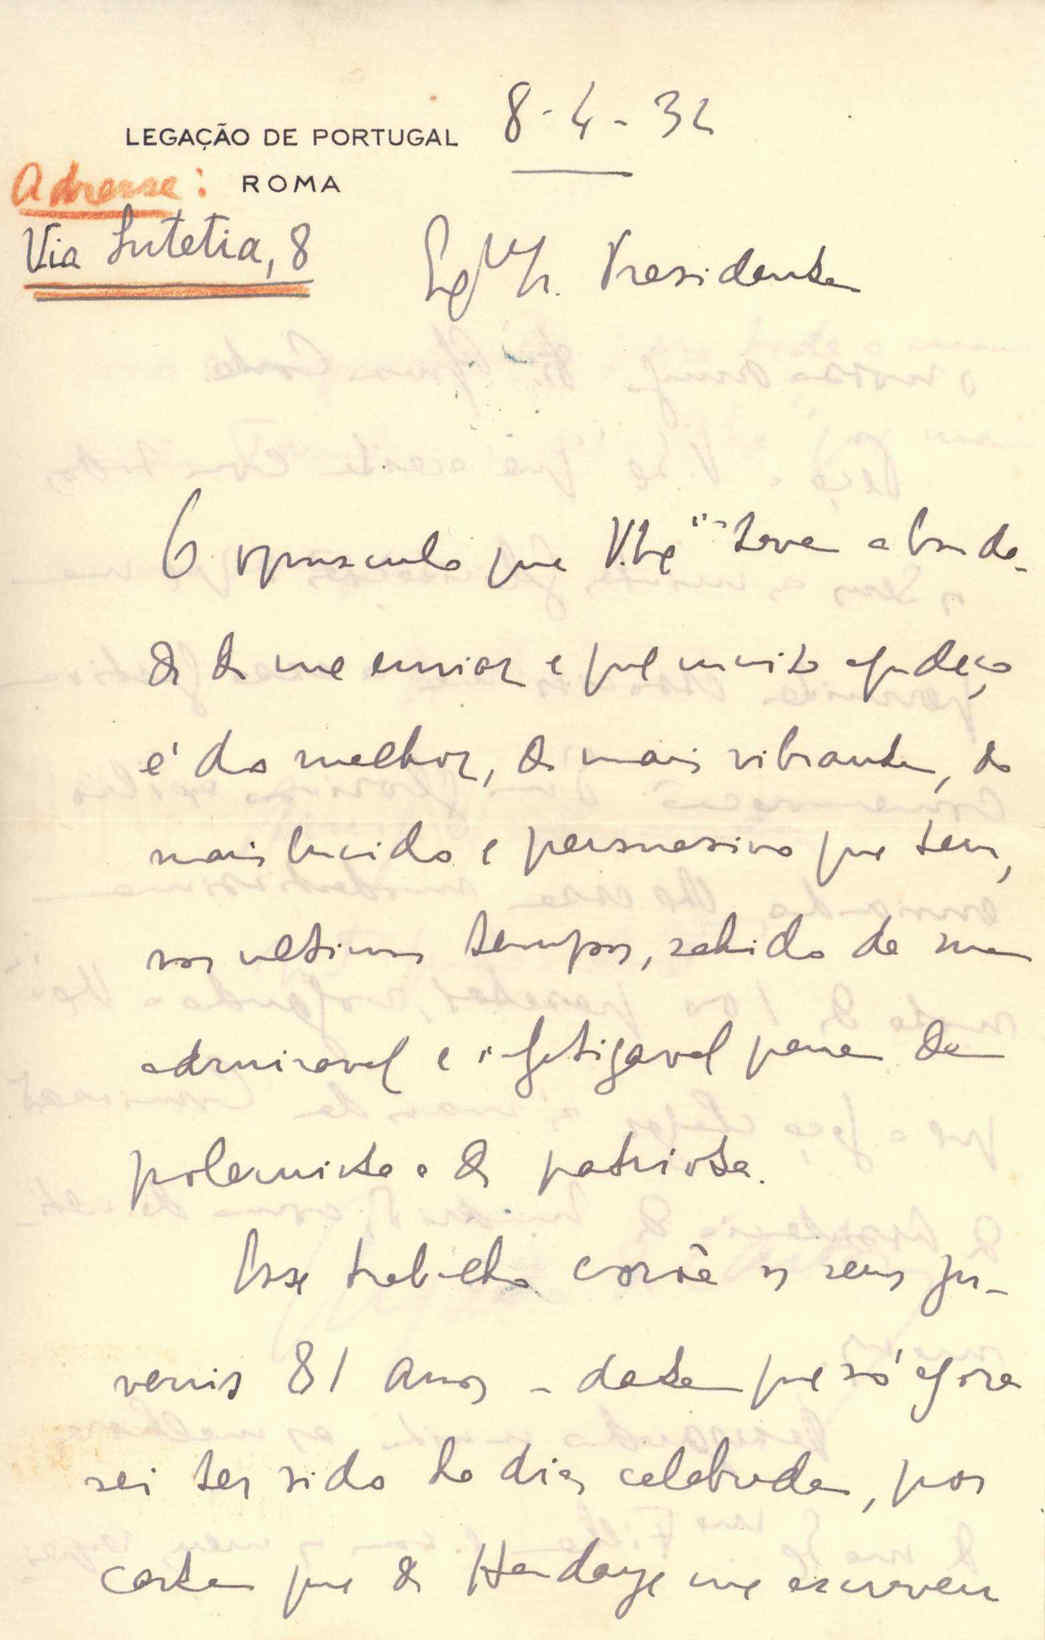 LEGAÇÃO DE PORTUGAL
8-4-32
Adresse: ROMA
Via Lutetia, 8
Exmo Sr. Presidente
O opusculo que V. Exª teve a bonda-
de de me enviar e que muito agradeço
é do melhor, do mais vibrante, do
mais lucido e persuasivo que tem,
nos ultimos tempos, sahido da sua
admiravel e infatigavel pena de
polemista e de patriota.
Esse trabalho corôa os seus ju-
venis 81 anos - data que só agora
sei ter sido ha dias celebrada, por
carta que de Hendaye me escreveu